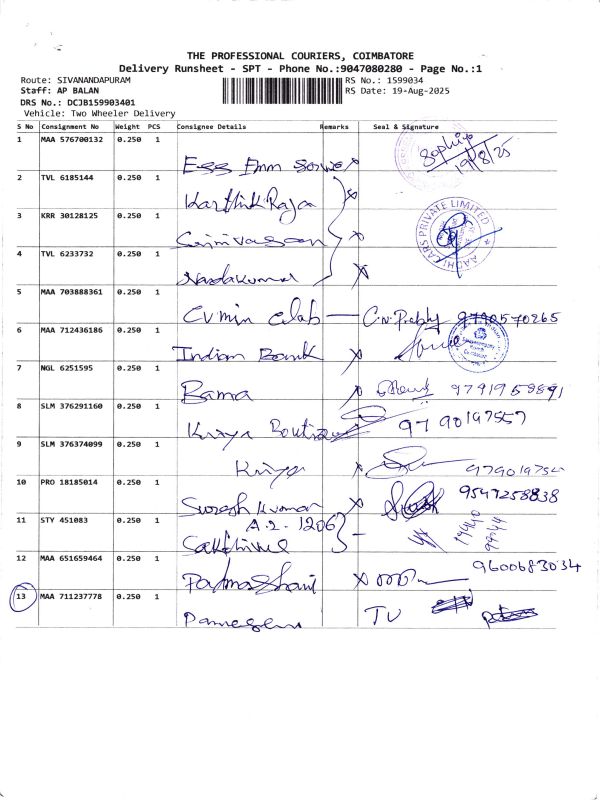 THE PROFESSIONAL COURIERS, COIMBATORE
Delivery Runsheet - SPT - Phone No.:9047080280 - Page No.:1
Route: SIVANANDAPURAM
RS No.: 1599034
Staff: AP BALAN
RS Date: 19-Aug-2025
DRS No.: DCJB159903401
Vehicle: Two Wheeler Delivery
S No Consignment No Weight PCS Consignee Details Remarks Seal & Signature
1 MAA 576700132 0.250 1
Sophia
19/8/25
2 TVL 6185144 0.250 1
Karthik Raja
3 KRR 30128125 0.250 1
AADHI CARS PRIVATE LIMITED
Srinivasan
4 TVL 6233732 0.250 1
Nandakumar
5 MAA 703888361 0.250 1
Cvmin Lab C.N. Prabhu 9790570265
6 MAA 712436186 0.250 1
Indian Bank
7 NGL 6251595 0.250 1
Bama
8 SLM 376291160 0.250 1
Kriya Boutique 9790197557
9 SLM 376374099 0.250 1
Kriya
10 PRO 18185014 0.250 1
Suresh Kumar 9597258838
11 STY 451083 0.250 1
A.2. 1206
12 MAA 651659464 0.250 1
9600683034
13 MAA 711237778 0.250 1
TV